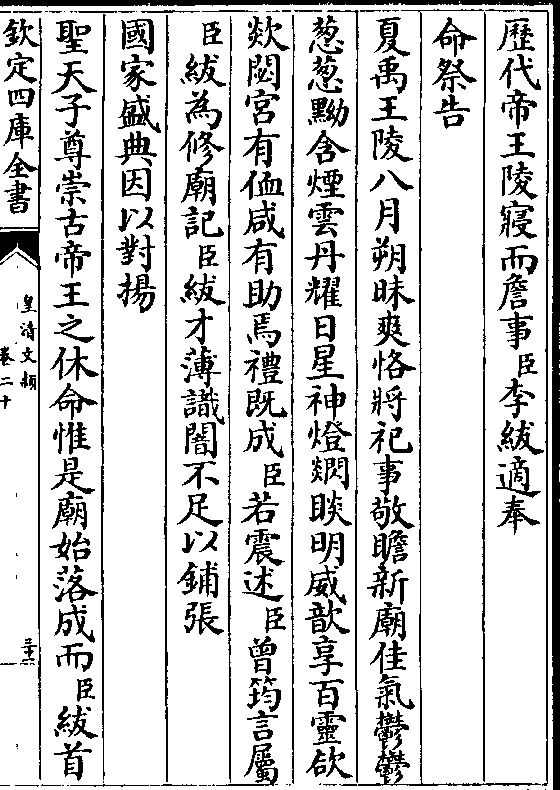 歷代帝王陵寢而詹事臣李紱適奉
命祭告
夏禹王陵八月朔昧爽恪將祀事敬瞻新廟佳氣鬱鬱
葱葱黝含煙雲丹耀日星神燈爓睒明威歆享百靈欱
欻閟宮有侐咸有助焉禮既成臣若震述臣曾筠言屬
臣紱為修廟記臣紱才薄識闇不足以鋪張
國家盛典因以對揚
聖天子尊崇古帝王之休命惟是廟始落成而臣紱首
欽定四庫全書
皇清文穎
卷二十